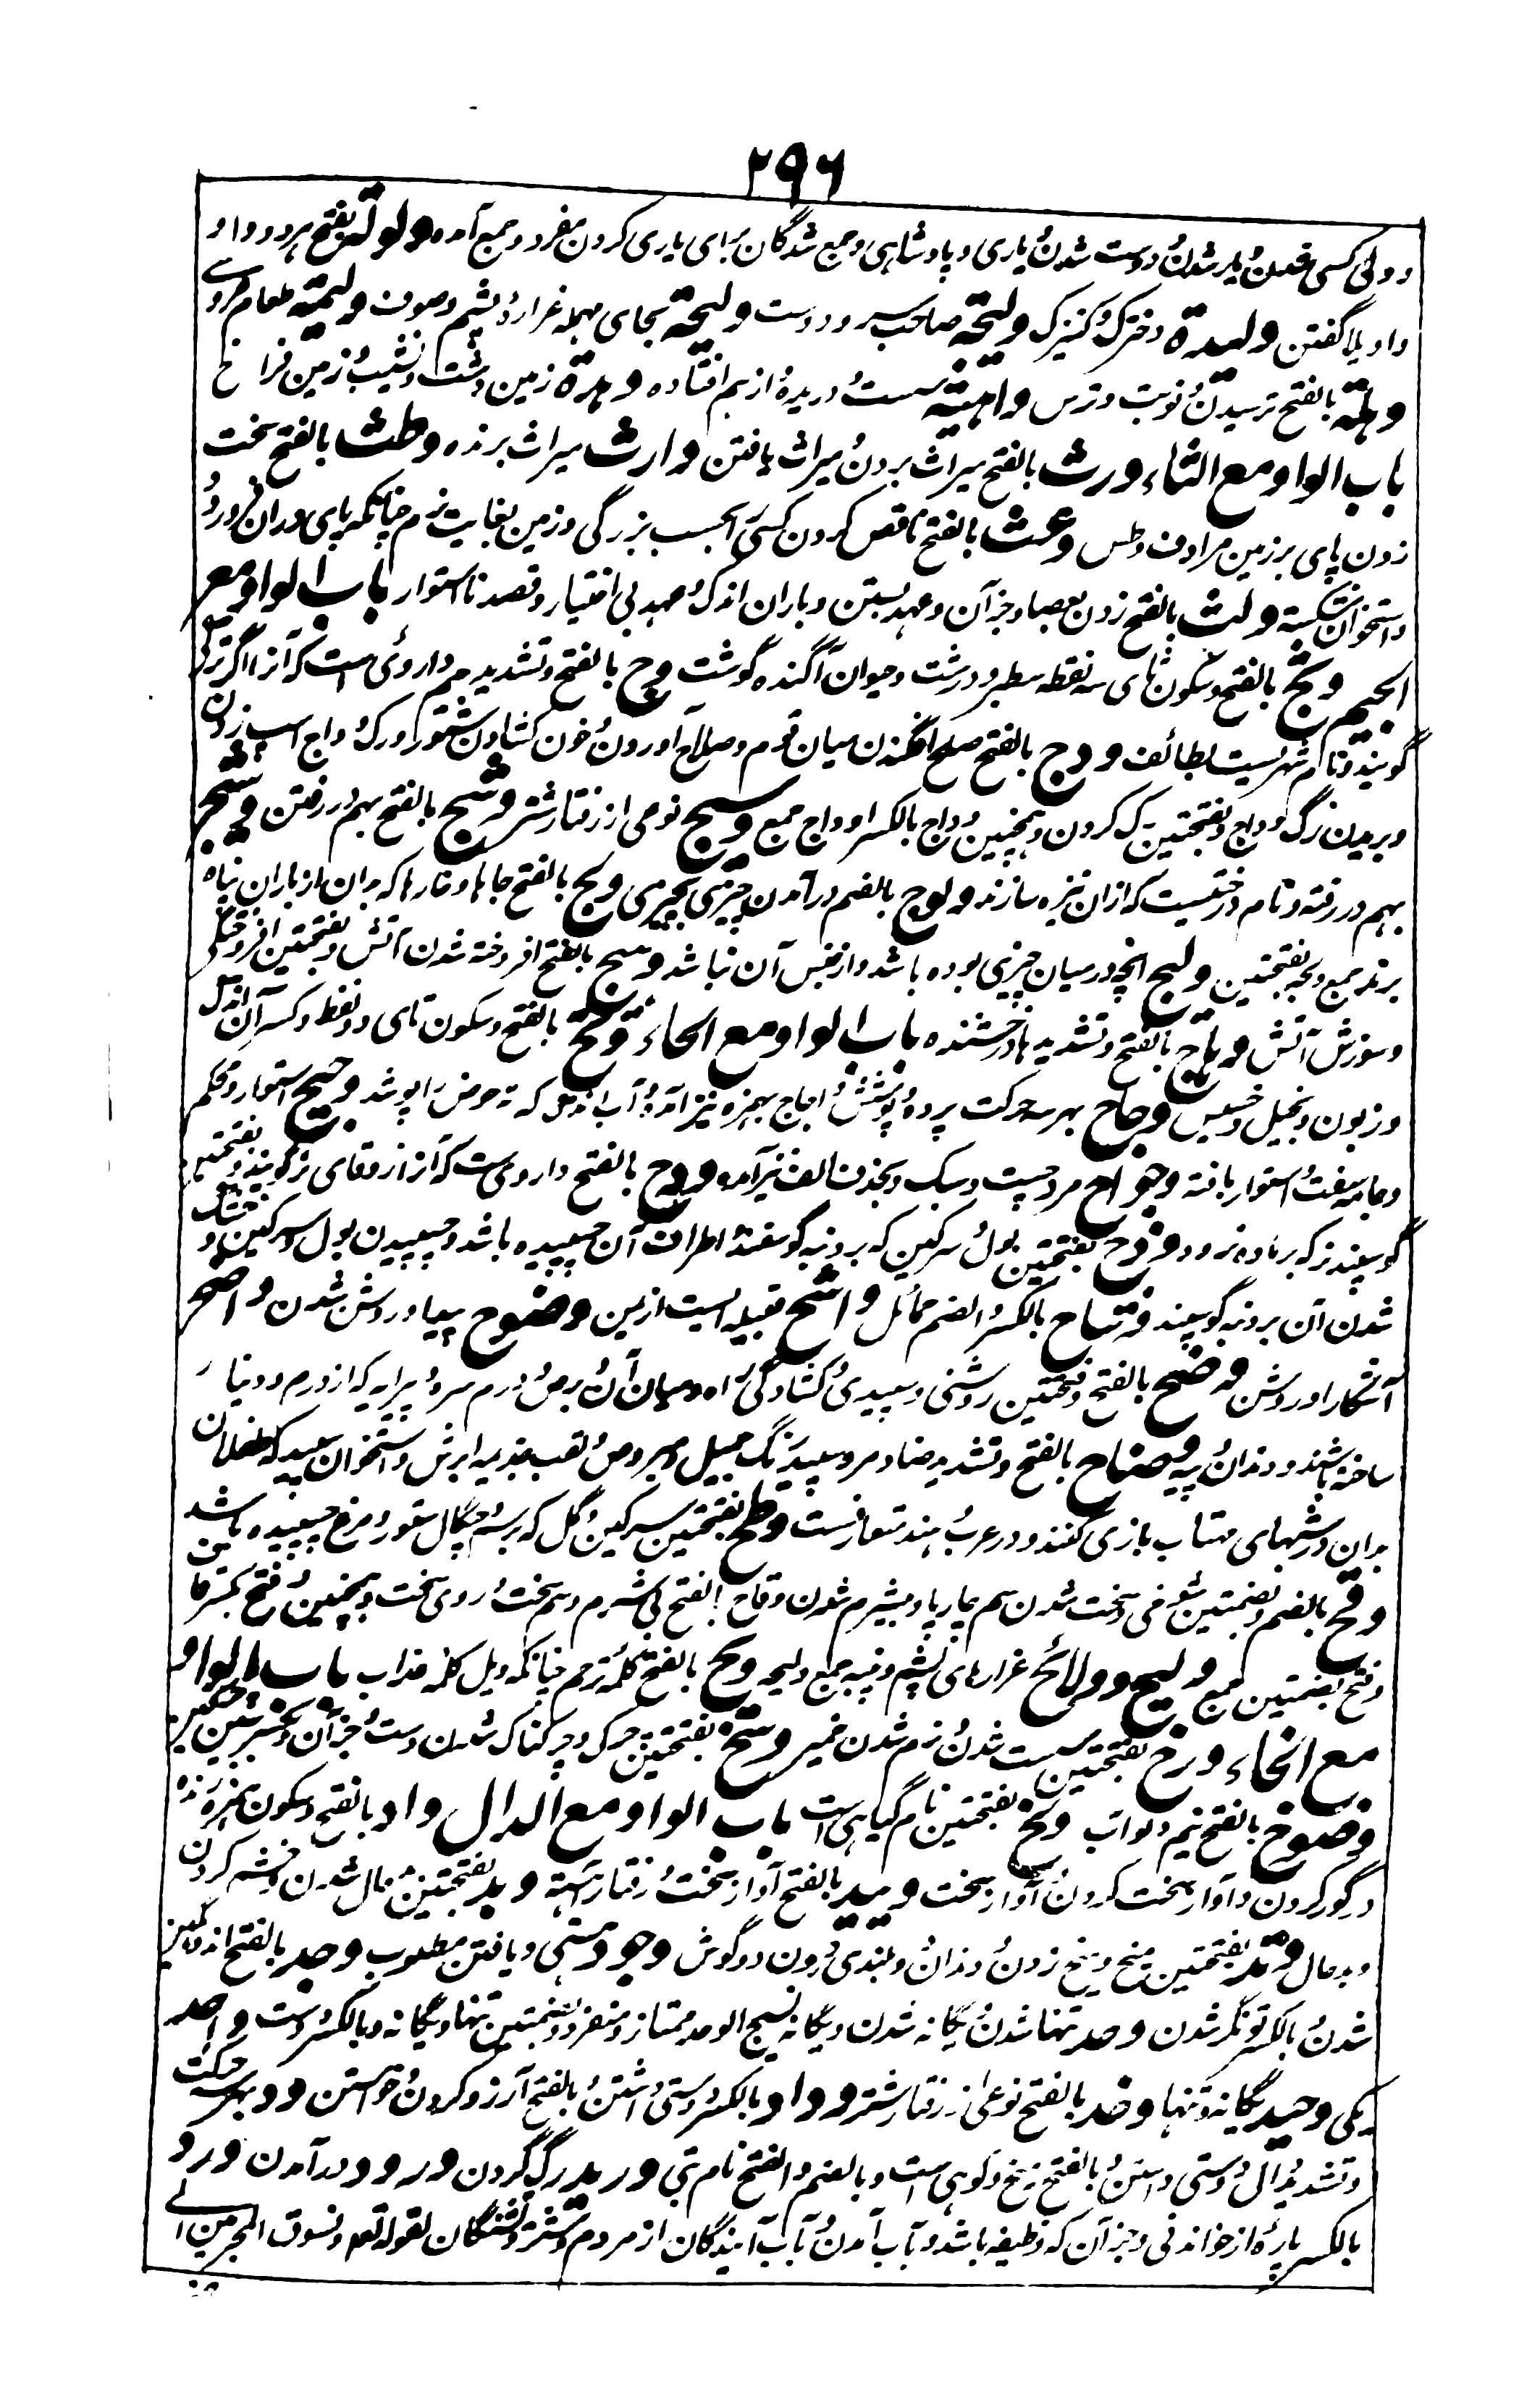 ۲۹۶
و ولی کسی شدن و یار شدن و دوست شدن و یاری و پادشاهی و جمع شدگان برای یاری کردن مفرد و جمع آمده ولوله بفتح هر دو واو
واویلا گفتن ولیدة دخترک و کنیزک ولیجة صاحب سر و دوست ولیحة بحای مهمله غراره پشم و صوف ولیمة طعام عروسے
وهلة بالفتح ترسیدن و نوبت و ترس واهیة سست و دریده و از هم افتاده وهدة زمین پشت و نشیب و زمین فراخ
باب الواو مع الثاء ورث بالفتح میراث بردن و میراث یافتن وارث میراث برنده وطث بالفتح سخت
زدن پای بر زمین مرادف وطس وعث بالفتح ناقص کردن کسی را بحسب بزرگی و زمین بغایت نرم چنانکه پای بدان فرو رود
و استخوان شکسته ولث بالفتح زدن بعصا و جز آن و عهد بستن و باران اندک و عهد بی اختیار و قصد نااستوار باب الواو مع
الجیم وثج بالفتح و سکون ثای سه نقطه سطبر و درشت و حیوان آگنده گوشت وج بالفتح و تشدید جیم داروئی است که آنرا اگر ترکی
گویند و نام شهریست بطائف ودج بالفتح صلح افگندن میان قوم و صلاح آوردن و خون کشادن ستور و رگ وداج اسپ زدن
و بریدن رگ وداج و بفتحتین رگ گردن و همچنین وداج بالکسر اوداج جمع وسیج نوعی از رفتار شتر وشج بالفتح بهم در رفتن وشیج
بهم در رفته و نام درختیست که از ان نیزه سازند ولوج بالضم درآمدن چیزی بچیزی ولج بالفتح جاها و غارها که بدان از باران پناه
برند جمع ولجه بفتحتین ولیج انچه در میان چیزی بوده باشد و از جنس آن نباشد وهج بالفتح افروخته شدن آتش و بفتحتین افروختگی
و سوزش آتش وهاج بالفتح و تشدید ها درخشنده باب الواو مع الحاء وتح بالفتح و سکون تای دو نقطه و کسر آن اندک
و زبون و بخیل و خسیس وجاح بهر سه حرکت پرده و پوشش و اجاح بهمزه نیز آمده و آب اندک که ته حوض را پوشد وجیح استوار و محکم
و جامه سفت و استوار بافته وحواح مرد چست و سبک و بحذف الف نیز آمده ودح بالفتح دارویست که آنرا زوفای تر گویند و بفتحتین
گوسپند نر که بر ماده نرود وذح بفتحتین بول و سرگین که بر دنبه گوسفند و اطراف آن چسپیده باشد و چسپیدن بول و سرگین و خشک
شدن آن بر دنبه گوسپند وشاح بالکسر و الضم حمائل واشح قبیله ایست از یمن وضوح پیدا و روشن شدن واضح
آشکارا و روشن وضح بالفتح و فتحتین روشنی و سپیدی و کشادگی راه و میان آن و برص و درم سره و پیرایه که از درم و دینار
ساخته باشند و دندان و پیه وضاح بالفتح و تشدید ضاد مرد سپید رنگ جمیل و مبروص و لقب جذیمه ابرش و استخوان سپید که طفلان
بدان در شبهای مهتاب بازی کنند و در عرب و هند متعارفست وطح بفتحتین سرگین و گل که بر سم و چنگال ستور و مرغ چسپیده باشد
وقح بالضم و بضمتین شوخی و سخت شدن سم چارپا و بیشرم شدن وقاح بالفتح بی شرم و سم سخت و روی سخت و همچنین وقح بکسر قاف
وقح بضمتین جمع ولیح و ولائح غرارهای پشم و پنبه جمع ولیحه ویح بالفتح کلمه ترحم چنانکه ویل کلمه عذاب باب الواو
مع الخاء ورخ بفتحتین سست شدن و نرم شدن خمیر وسخ بفتحتین چرک و چرکناک شدن دست و جز آن و بکسر سین چرکین
وضوخ بالفتح نیم دلو آب ولخ بفتحتین نام گیاهی است باب الواو مع الدال واد بالفتح و سکون همزه زنده
در گور کردن و آواز سخت کردن و آواز سخت وئید بالفتح آواز سخت و رفتار آهسته وبد بفتحتین بدحال شدن و خشم کردن
و بدحال وتد بفتحتین میخ و میخ زدن و دندان و بلندی درون دو گوش وجود هستی و یافتن مطلوب وجد بالفتح اندوهگین
شدن و بالکسر تونگر شدن وحد تنها شدن و یگانه شدن و یگانه نسیج الوحد ممتاز و منفرد و بضمتین تنها و یگانه و بالکسر دست واحد
یکی وحید یگانه و تنها وخد بالفتح نوعی از رفتار شتر وداد بالکسر دوستی داشتن و بالفتح آرزو کردن و خواستن ود بهر سه حرکت
و تشدید دال دوستی داشتن و بالفتح میخ و کوهی است و بالضم و الفتح نام بتی ورید رگ گردن ورود درآمدن ورد
بالکسر پارهٔ از خواندنی و جز آن که وظیفه باشد و بآب آمدن و بآب آیندگان از مردم و شتر و تشنگان لقوله تعم و نسوق المجرمین الے